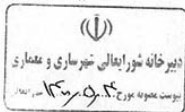 دبیرخانه شورایعالی شهرسازی و معماری
پیوست مصوبه مورخ ۱۴۰۰.۵.۴